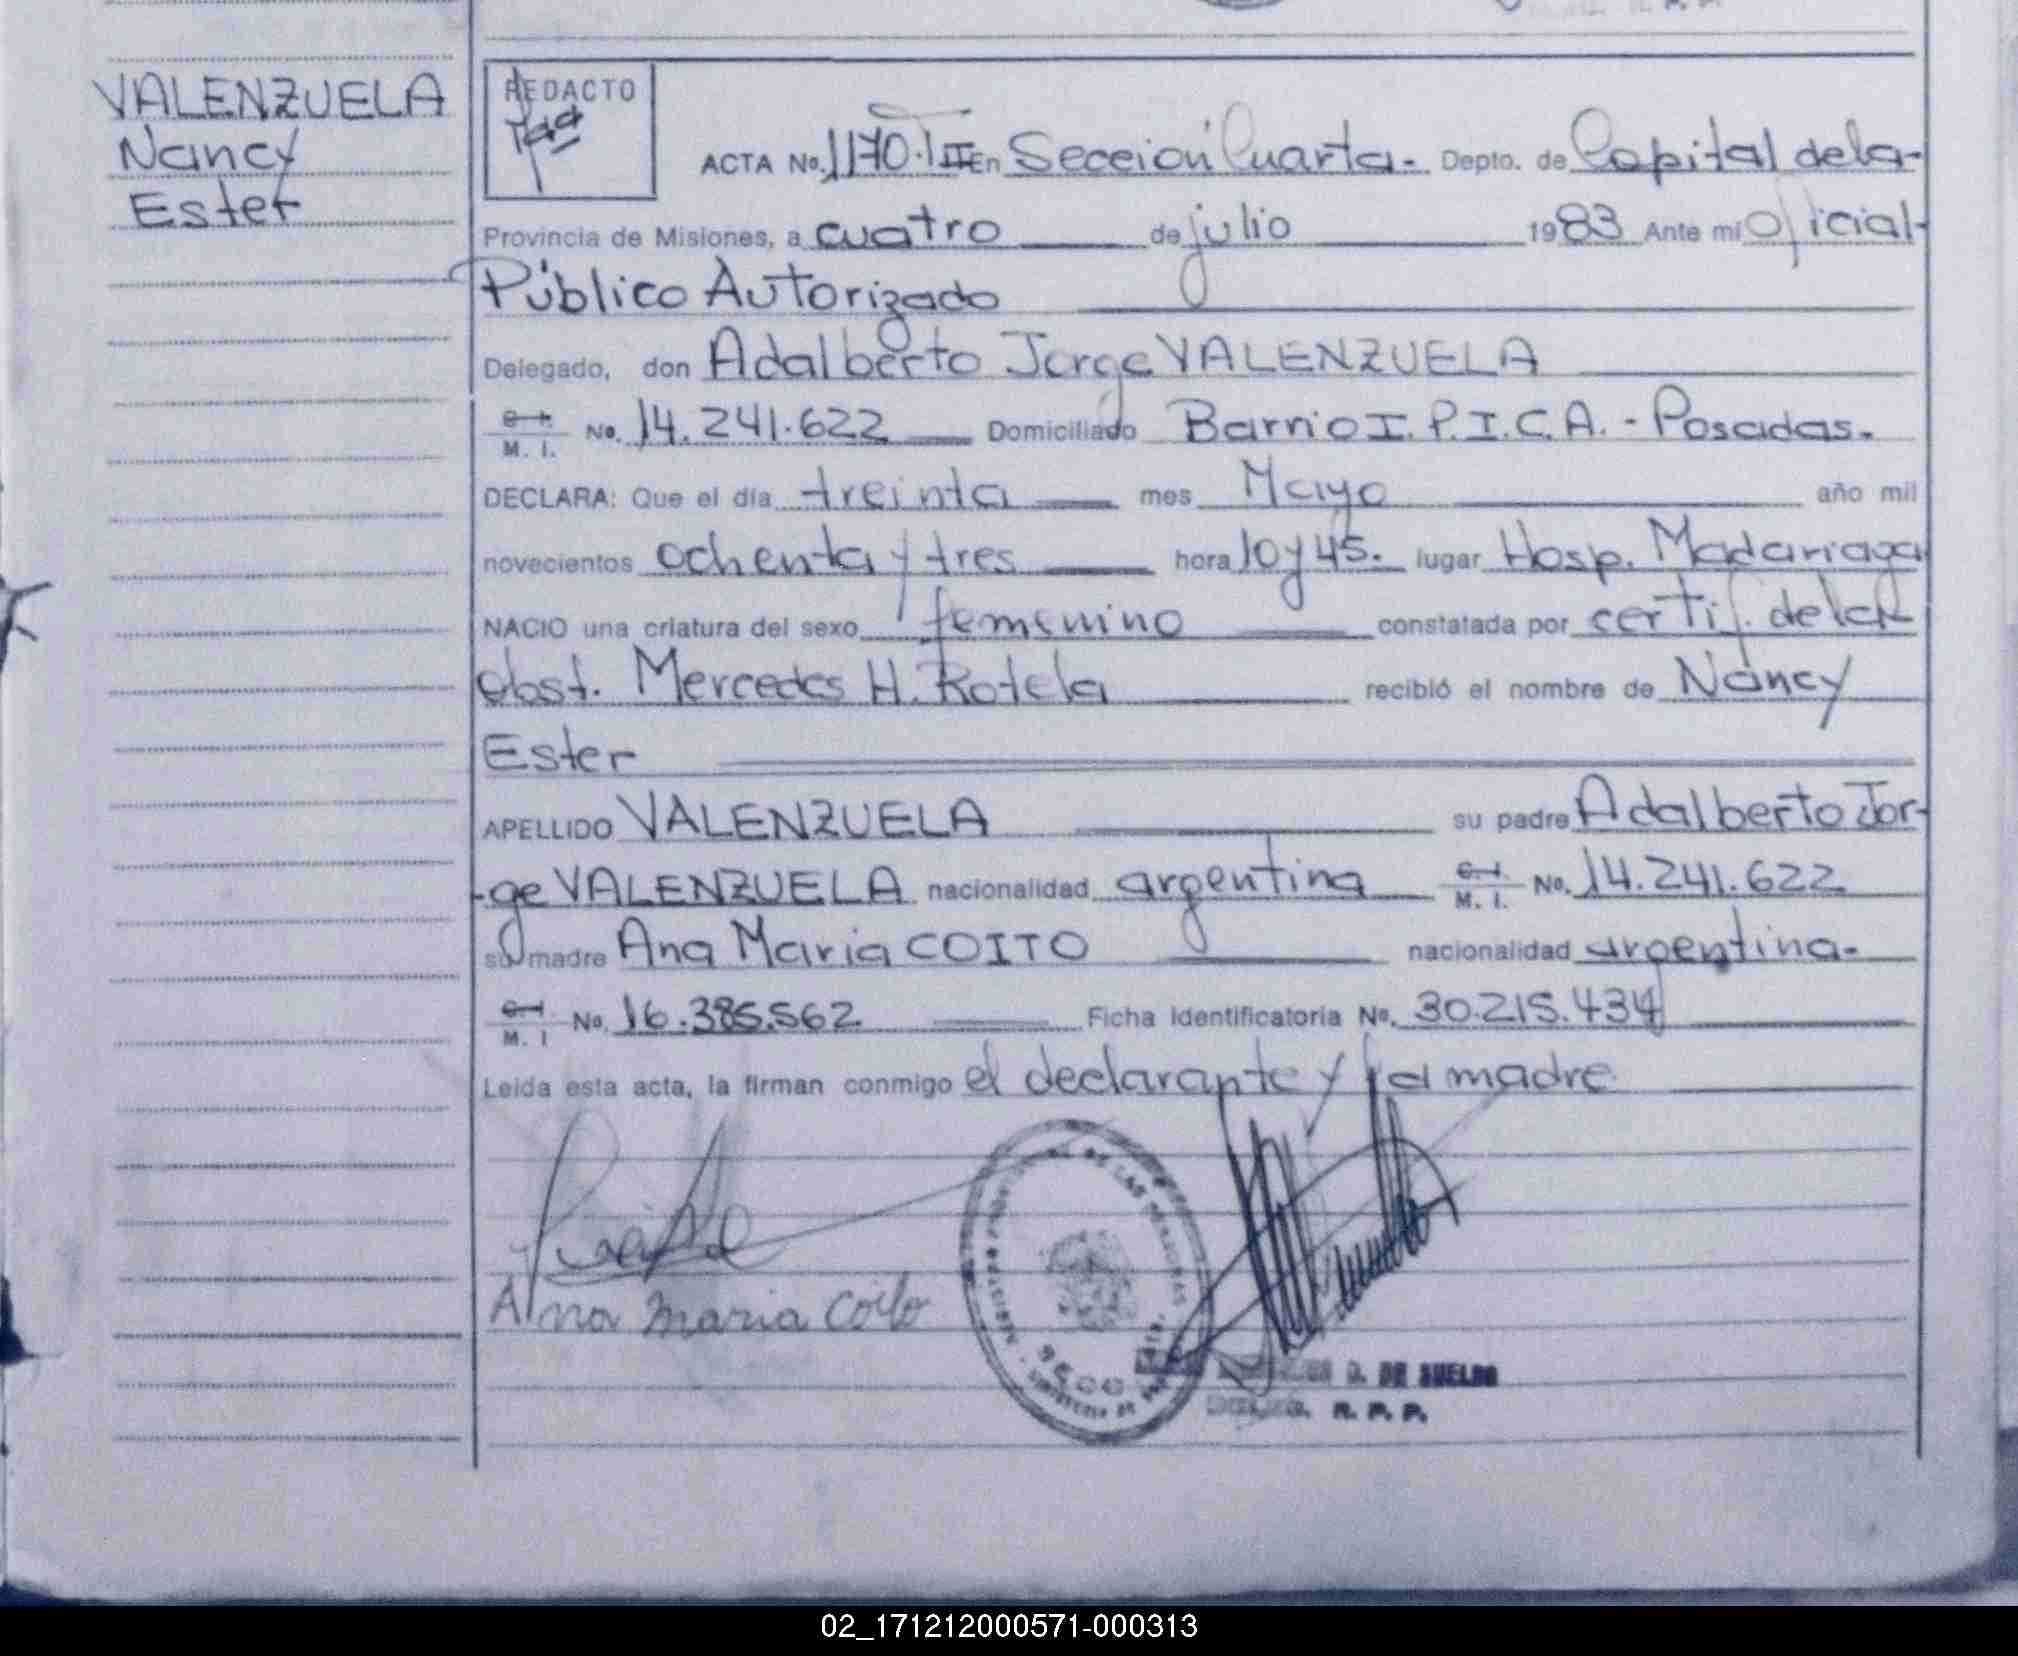 VALENZUELA
Nancy
Ester
REDACTO
ACTA No. 1170.III En Sección Cuarta.- Depto. de Capital de la-
Provincia de Misiones, a cuatro de julio 1983 Ante mí Oficial-
Público Autorizado
Delegado, don Adalberto Jorge VALENZUELA
M. I. No. 14.241.622 Domiciliado Barrio I.P.I.C.A. - Posadas.
DECLARA: Que el día treinta mes Mayo año mil
novecientos ochenta y tres hora 10 y 45. lugar Hosp. Madariaga
NACIO una criatura del sexo femenino constatada por certif. de la
obst. Mercedes H. Rotela recibió el nombre de Nancy
Ester
APELLIDO VALENZUELA su padre Adalberto Jor-
-ge VALENZUELA nacionalidad argentina M. I. No. 14.241.622
su madre Ana Maria COITO nacionalidad argentina.
M. I No. 16.385.562 Ficha Identificatoria No. 30.215.434
Leída esta acta, la firman conmigo el declarante y la madre
Ana maria Coito
DE LAS PERSONAS
D. DE SUELDO
R. P. P.
02_171212000571-000313